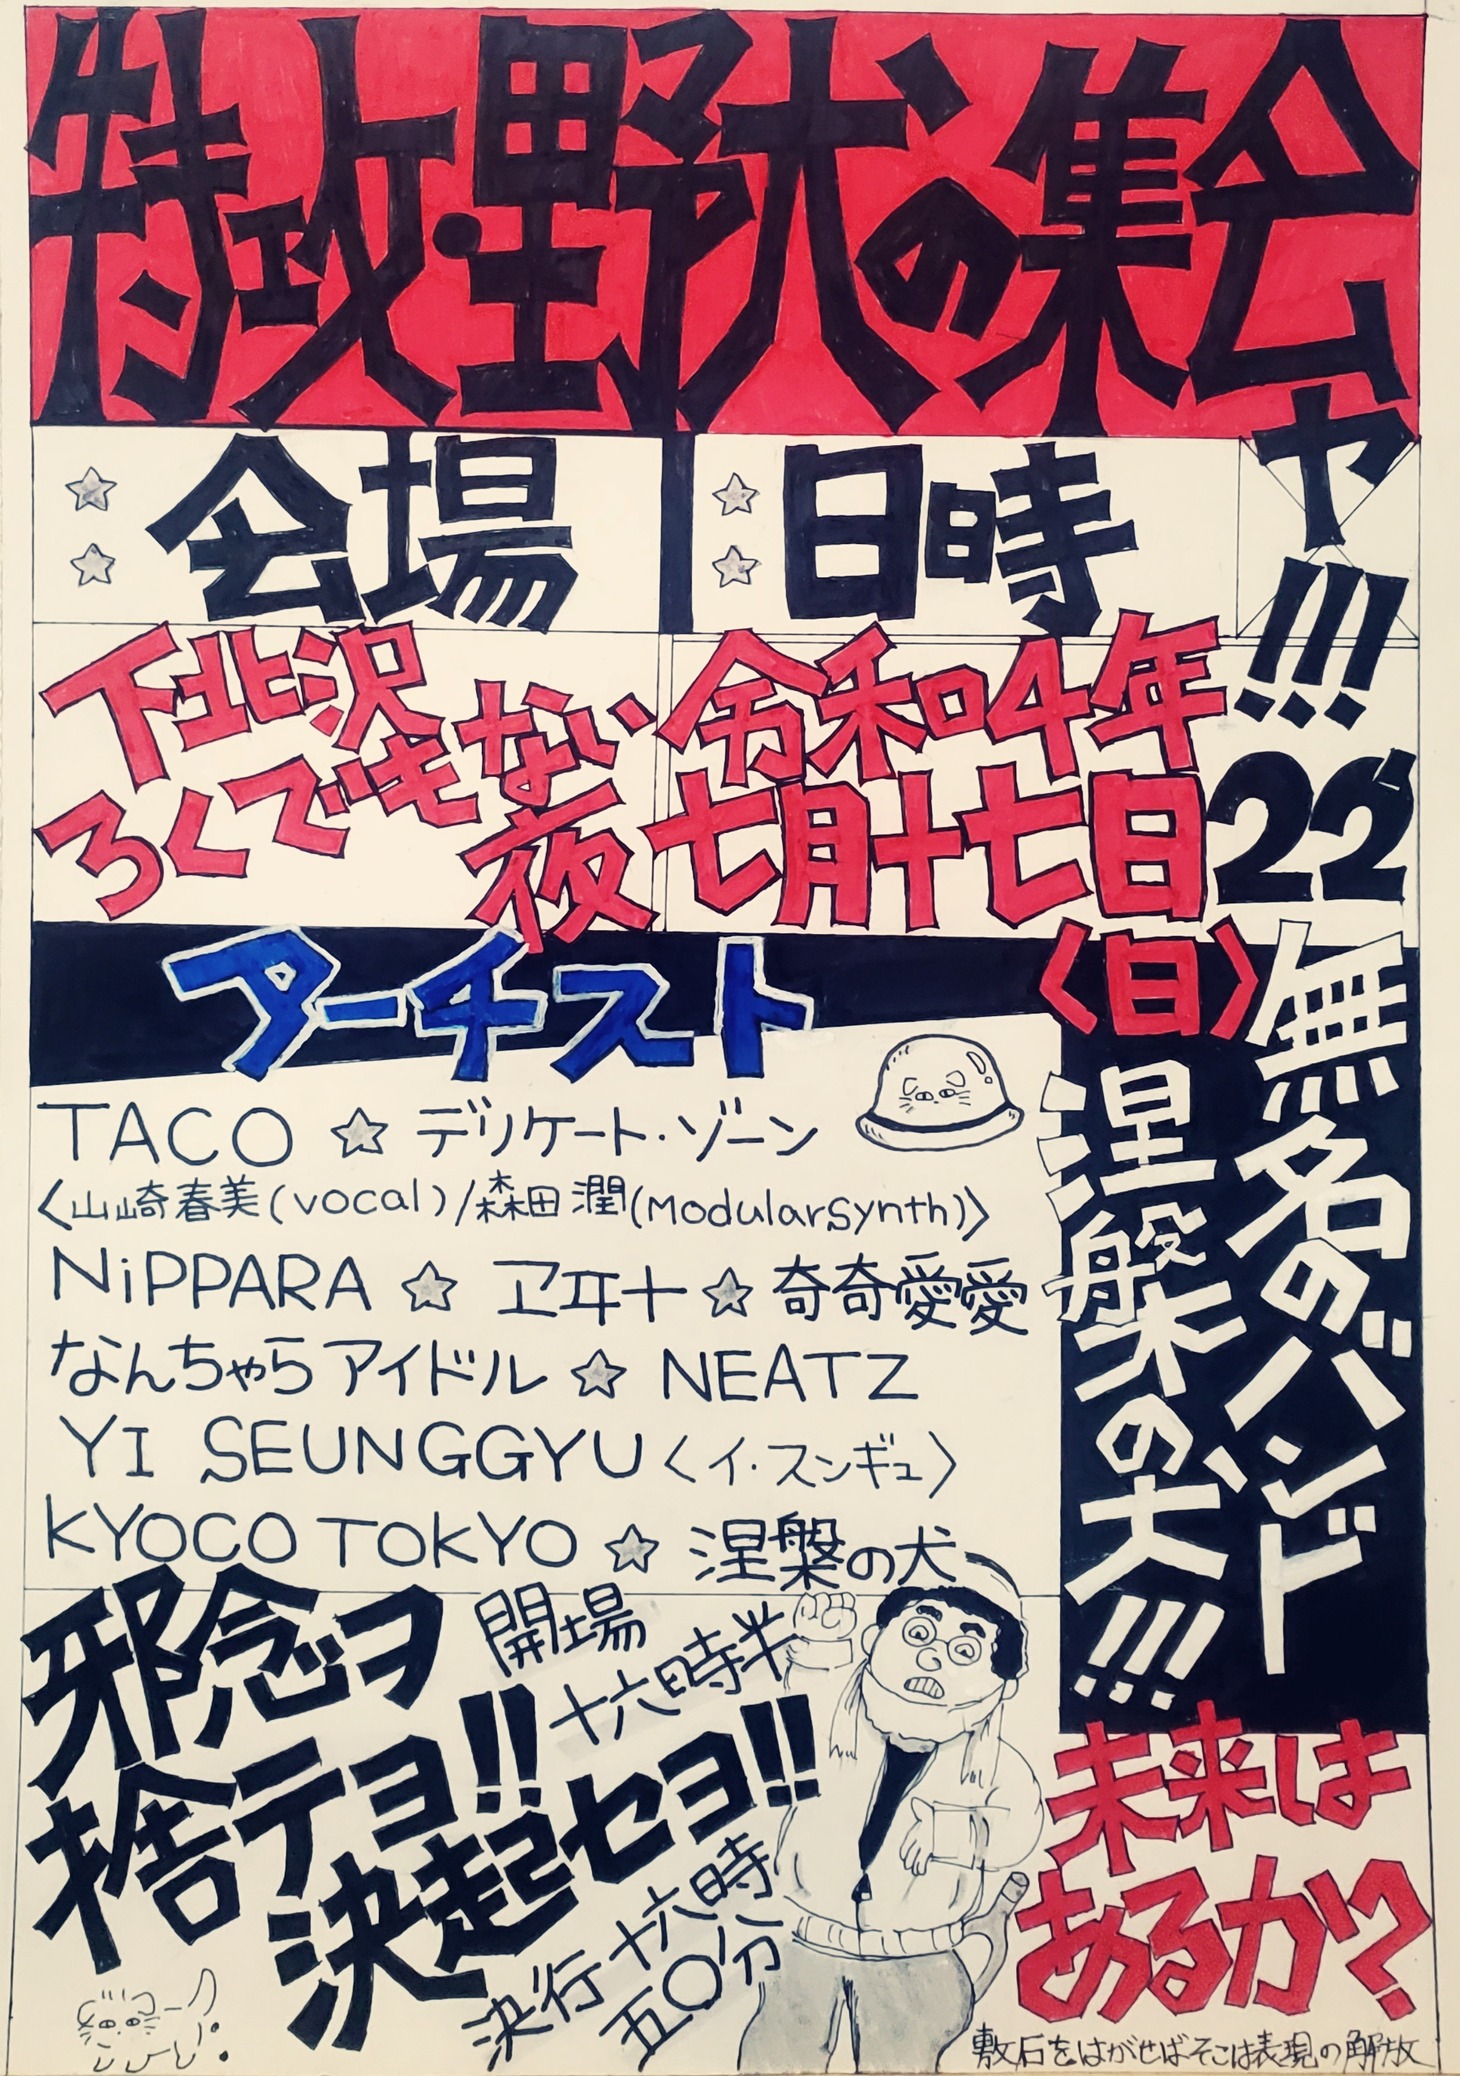 特攻・野犬の集会
ヤ!!!
22
会場
下北沢
ろくでもない
夜
日時
令和4年
七月十七日
〈日〉
アーチスト
TACO ☆ デリケート・ゾーン
〈山崎春美(vocal)/森田潤(ModularSynth)〉
NiPPARA ☆ ヱヰ十 ☆ 奇奇愛愛
なんちゃらアイドル ☆ NEATZ
YI SEUNGGYU〈イ・スンギュ〉
KYOCO TOKYO ☆ 涅槃の犬
無名のバンド
涅槃の犬!!!
邪念ヲ
捨テヨ!!
決起セヨ!!
開場
十六時半
決行十六時
五〇分
未来は
あるか?
敷石をはがせばそこは表現の解放